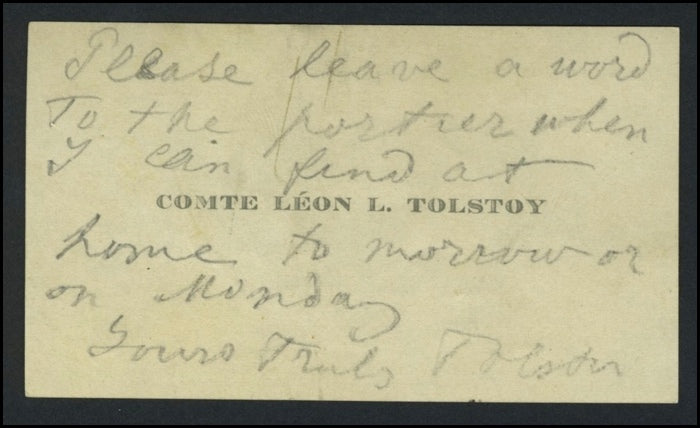 Please leave a word
To the portier when
I can find at
COMTE LÉON L. TOLSTOY
home to morrow or
on Monday
Yours Truly Tolstoy